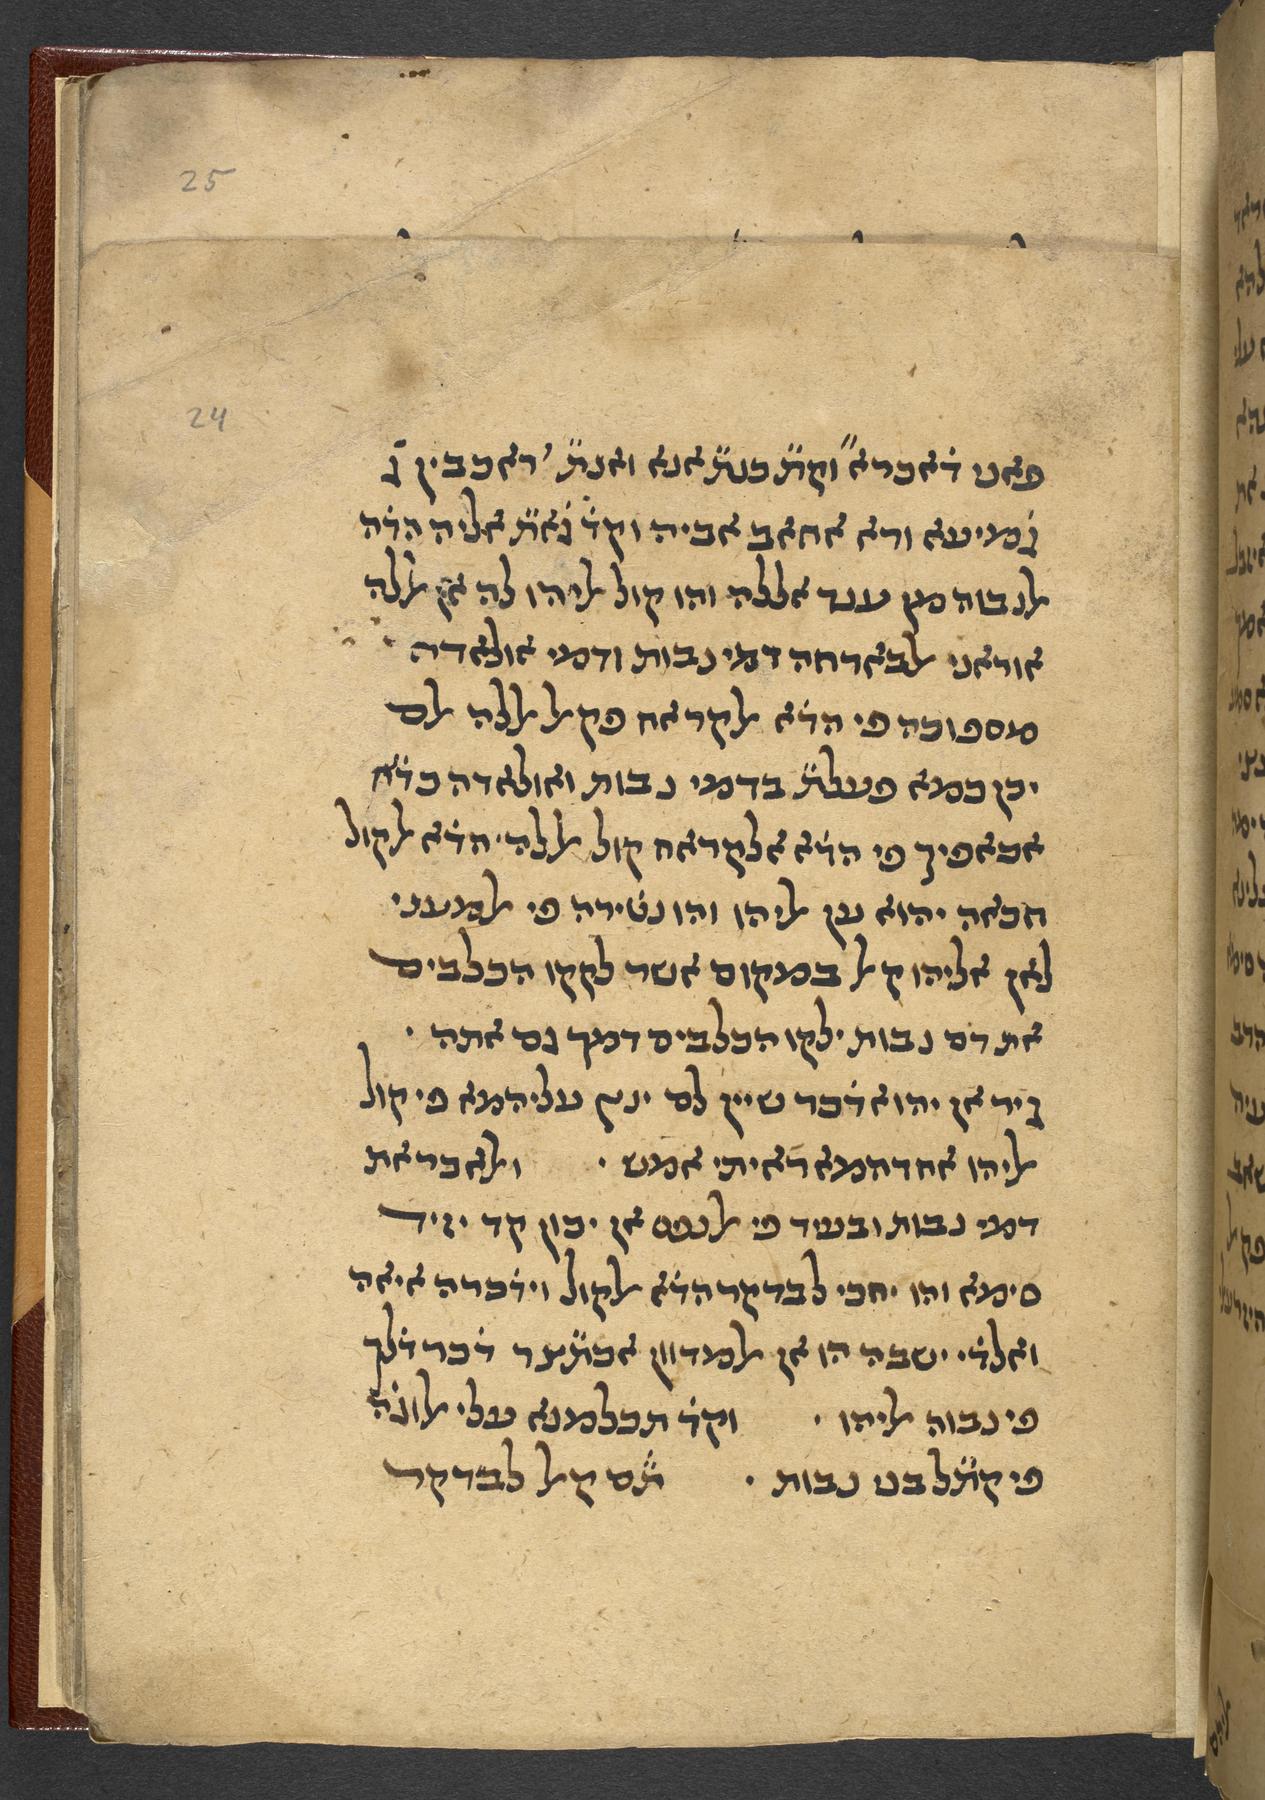 25
24
פאנ דׄאכרא וקתׄ כנתׄ אנא ואנתׄ ראכבין גׄ
גׄמיעא ורא אחאב אביה וקדׄ גׄאתׄ אליה הדׄה
לנבוה מן ענד אללה והו קול ליהו לה אן ללה
אוראני לבארחה דמי נבות ודמי אולאדה
מספוכה פי הדׄא לקראח פקל ללה לס
יכן כמא פעלתׄ בדמי נבות ואולאדה כדׄא
אכאפיך פי הדׄא אלקראח קול ללה הדׄא לקול
חכאה יהוא ען ליהו והו נטׄירה פי למעני
לאן אליהו קל במקום אשר לקקו הכלבים
את דם נבות ילקו הכלבים דמך גם אתה ·
גיר אן יהוא דׄכר שיין לם ינץ עליהמא פי קול
ליהו אחדהמא ראיתי אמש · ולאכר את
דמי נבות ובעיד פי לנפס אן יכון קד יזיד
סימא והו יחכי לבדקר הדׄא לקול וידׄכרה איאה
ואלדׄי ישבה הו אן למדוון אכׄתׄצר דׄכר דׄלך
פי נבוה ליהו · וקדׄ תכלמנא עלי לוגׄה
פי קתׄל בנו נבות · תׄם קל לבדקר